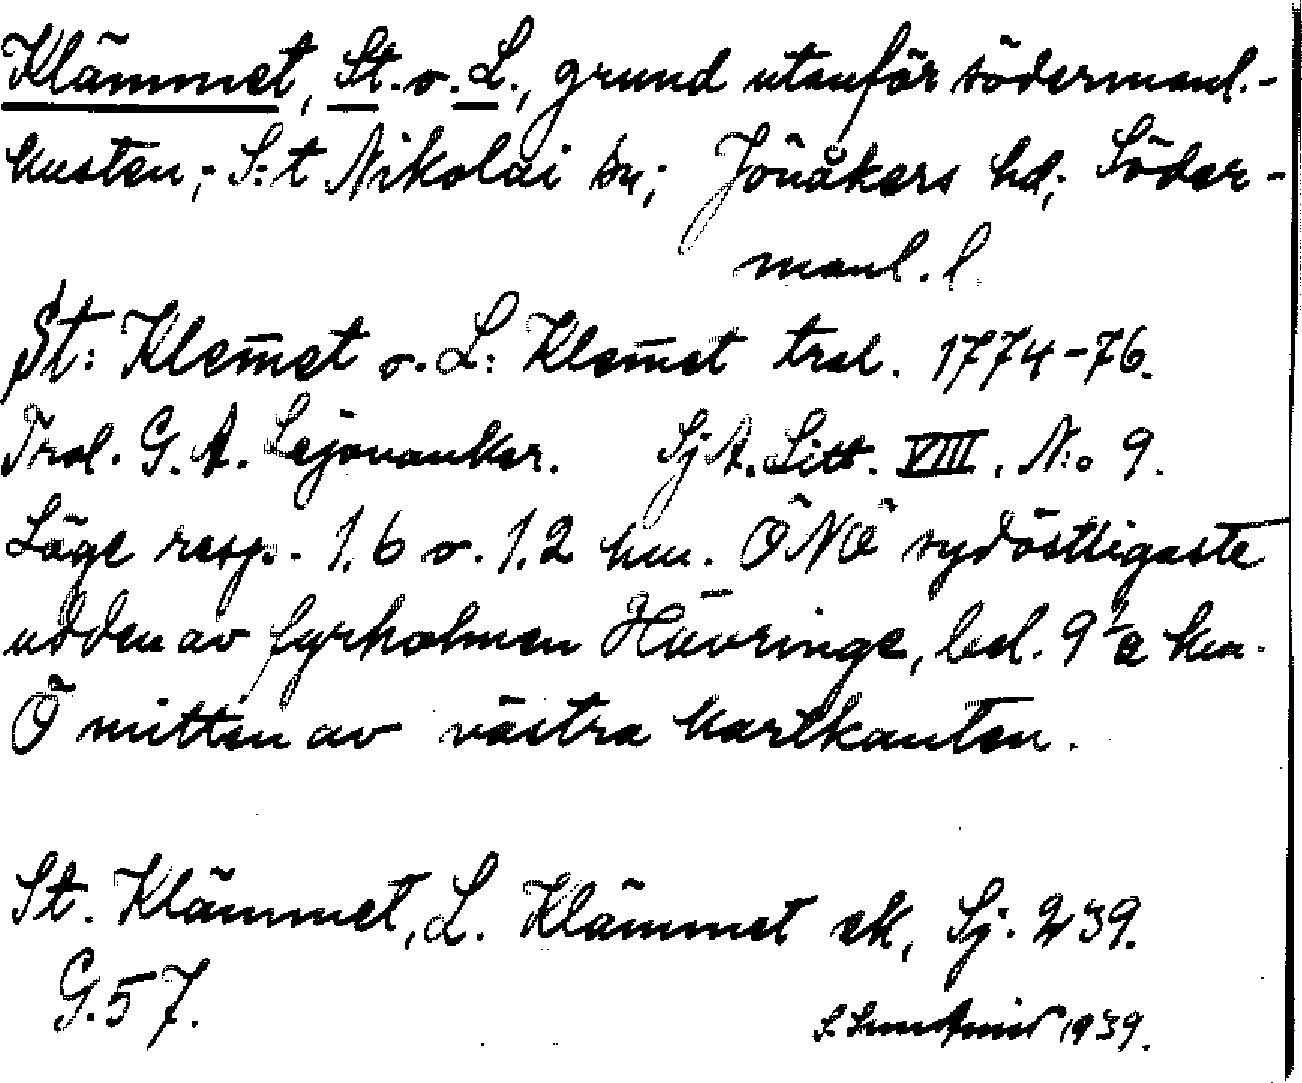 Klämmet, St. o. L., grund utanför södermanl.-
kusten; S:t Nikolai sn; Jönåkers hd; Söder-
manl. l.
St: Klem̅et o. L: Klem̅et trol. 1774-76.
Trol. G. A. Lejonanker. SjA. Litt. VIII. N:o 9.
Läge resp. 1,6 o. 1,2 km. ÖNÖ sydöstligaste
udden av fyrholmen Hävringe, bel. 9 1/2 km.
Ö mitten av västra kartkanten.
St. Klämmet, L. Klämmet ek, Sj. 239.
G. 57.
1939.